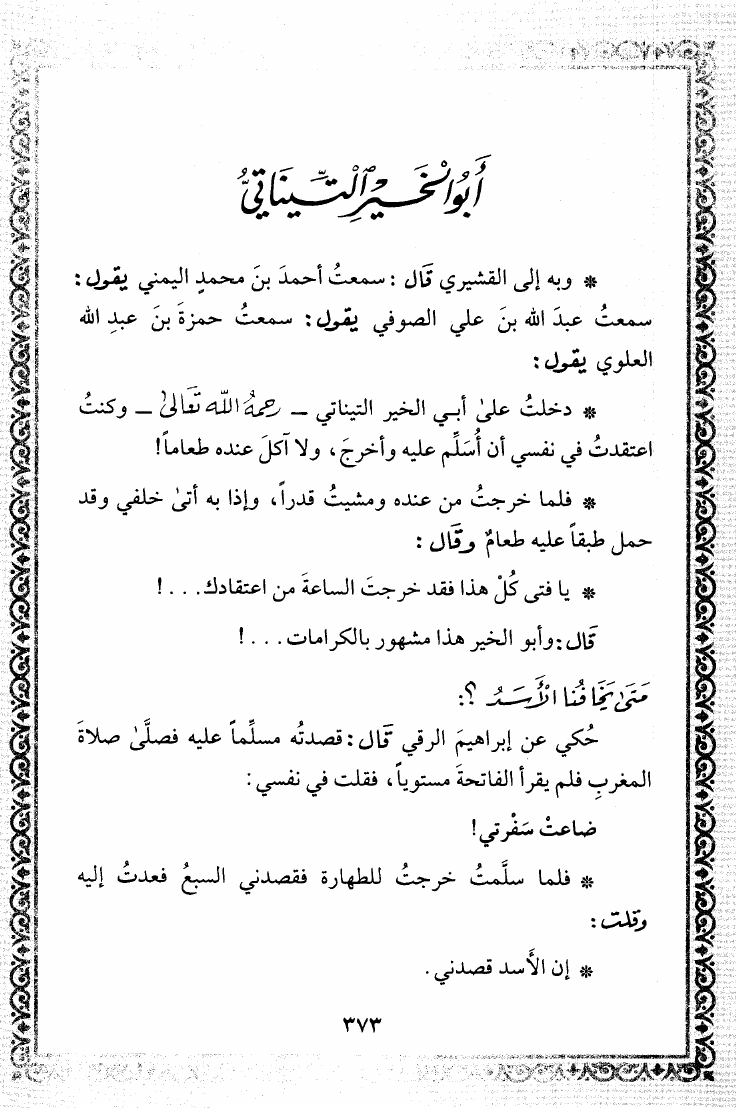 أَبُو الْخَيْرِ التِّينَاتِيُّ
* وبه إلى القشيري قَال : سمعتُ أحمدَ بنَ محمدٍ اليمني يقول :
سمعتُ عبدَ الله بنَ علي الصوفي يقول : سمعتُ حمزةَ بنَ عبدِ الله
العلوي يقول :
* دخلتُ علىٰ أبي الخير التيناتي ــ رحمهُ اللّه تعَالىٰ ــ وكنتُ
اعتقدتُ في نفسي أن أُسَلِّم عليه وأخرجَ، ولا آكلَ عنده طعاماً!
* فلما خرجتُ من عنده ومشيتُ قدراً، وإذا به أتىٰ خلفي وقد
حمل طبقاً عليه طعامٌ وقَال :
* يا فتى كُلْ هذا فقد خرجتَ الساعةَ من اعتقادك. . . !
قَال : وأبو الخير هذا مشهور بالكرامات. . . !
مَتَىٰ يَخَافُنا الْأَسَدُ ؟:
حُكي عن إبراهيمَ الرقي قَال : قصدتُه مسلِّماً عليه فصلَّىٰ صلاةَ
المغربِ فلم يقرأ الفاتحةَ مستوياً، فقلت في نفسي :
ضاعتْ سَفْرتي!
* فلما سلَّمتُ خرجتُ للطهارة فقصدني السبعُ فعدتُ إليه
وقلت :
* إن الأَسد قصدني.
٣٧٣